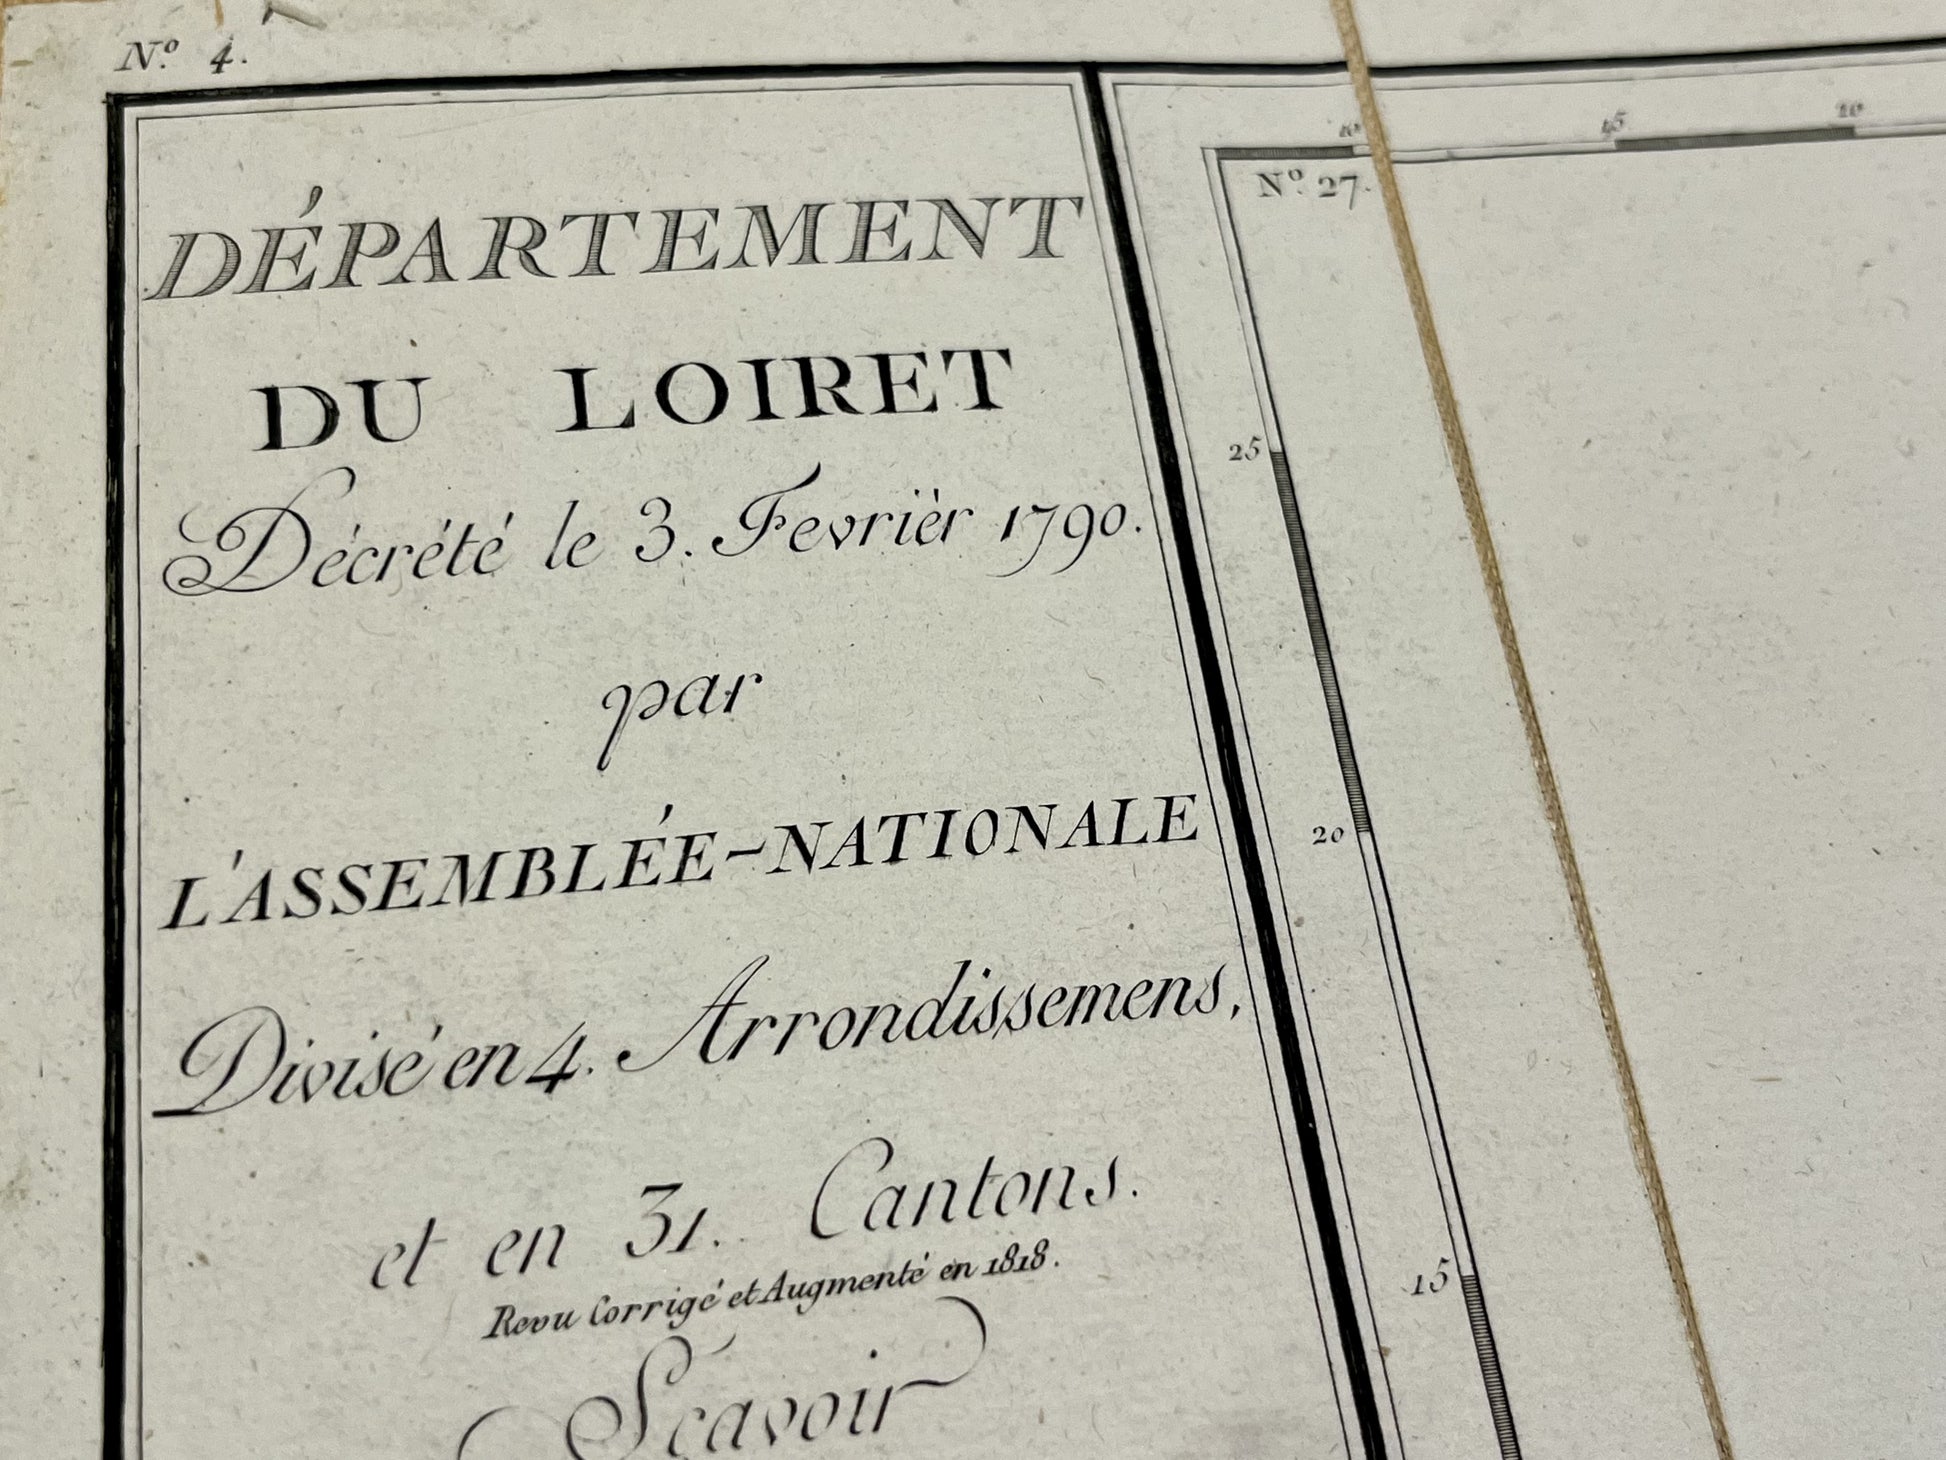 N.º 4.
DÉPARTEMENT
DU LOIRET
Décrété le 3. Fevriër 1790.
par
L'ASSEMBLÉE-NATIONALE
Divisé en 4. Arrondissemens,
et en 31. Cantons.
Revu Corrigé et Augmenté en 1818.
Sçavoir
10 15 20
N.º 27.
25
20
15